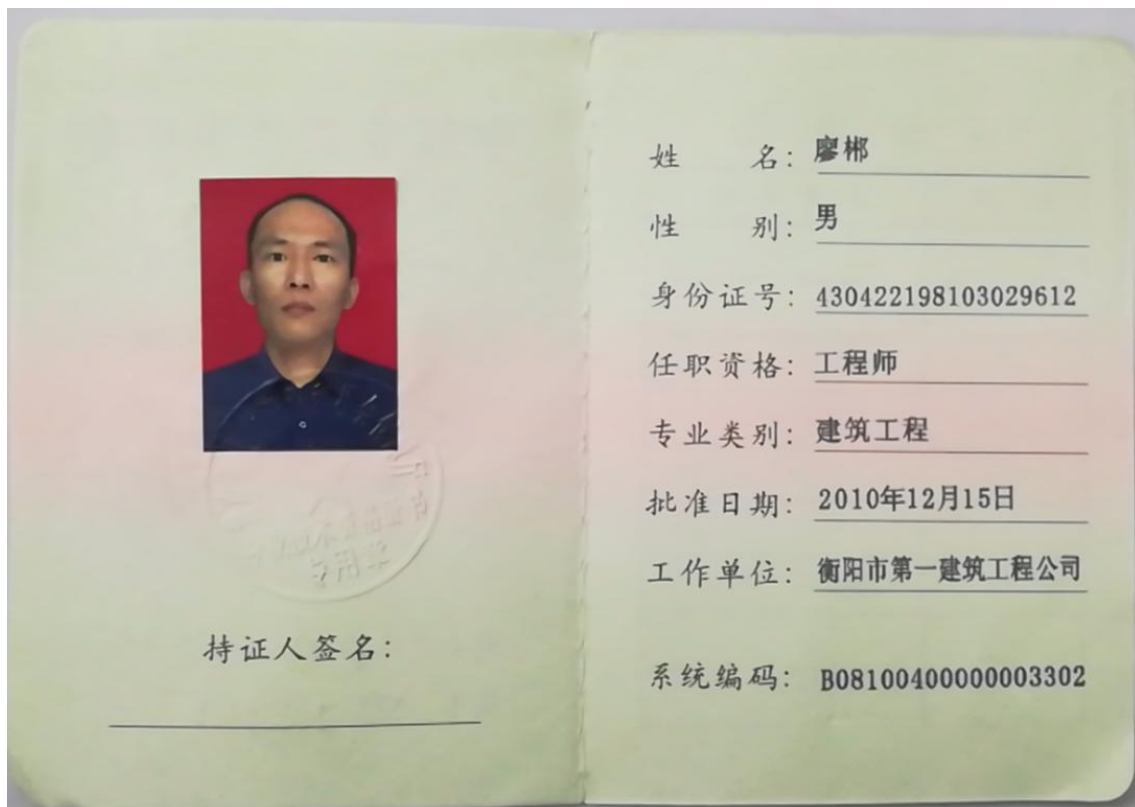 持证人签名:
姓 名: 廖郴
性 别: 男
身份证号: 430422198103029612
任职资格: 工程师
专业类别: 建筑工程
批准日期: 2010年12月15日
工作单位: 衡阳市第一建筑工程公司
系统编码: B08100400000003302